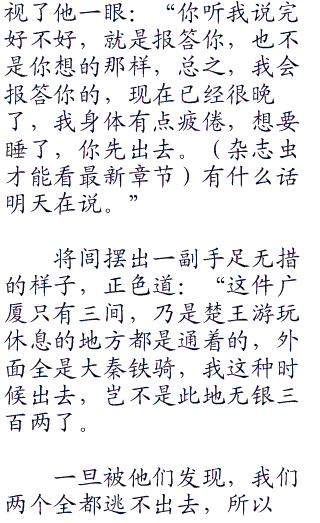 视了他一眼：“你听我说完
好不好，就是报答你，也不
是你想的那样，总之，我会
报答你的，现在已经很晚
了，我身体有点疲倦，想要
睡了，你先出去。（杂志虫
才能看最新章节）有什么话
明天在说。”
将闾摆出一副手足无措
的样子，正色道：“这件广
厦只有三间，乃是楚王游玩
休息的地方都是通着的，外
面全是大秦铁骑，我这种时
候出去，岂不是此地无银三
百两了。
一旦被他们发现，我们
两个全都逃不出去，所以